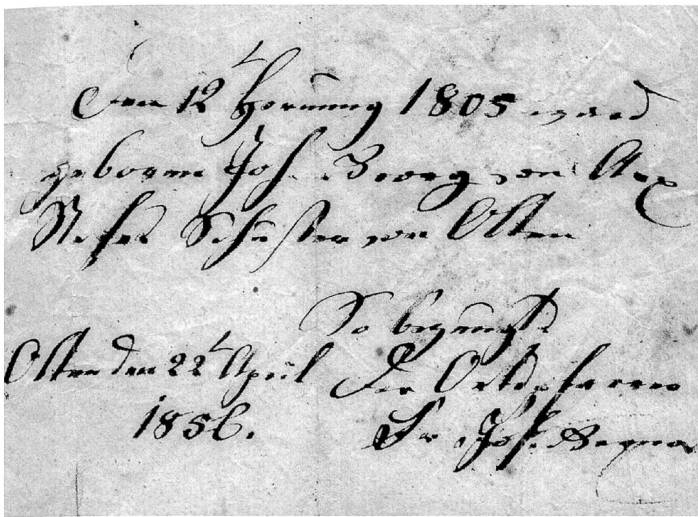 Den 12t Hornung 1805 ward
geboren Joh. Georg von Arx
Schuster von Olten
So bezeugt
Olten den 22t April Der Ortspfarrer
1856.